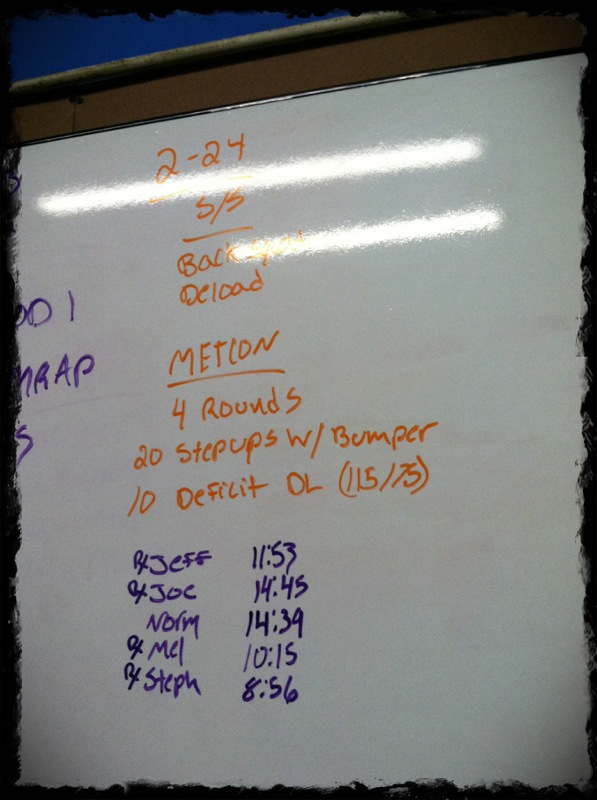 2-24
S/S
Back
Deload
METCON
4 Rounds
20 Stepups w/ Bumper
10 Deficit DL (115/75)
Rx Jeff 11:53
Rx Joe 14:45
Norm 14:39
Rx Mel 10:15
Rx Steph 8:56
OD 1
MRAP
S